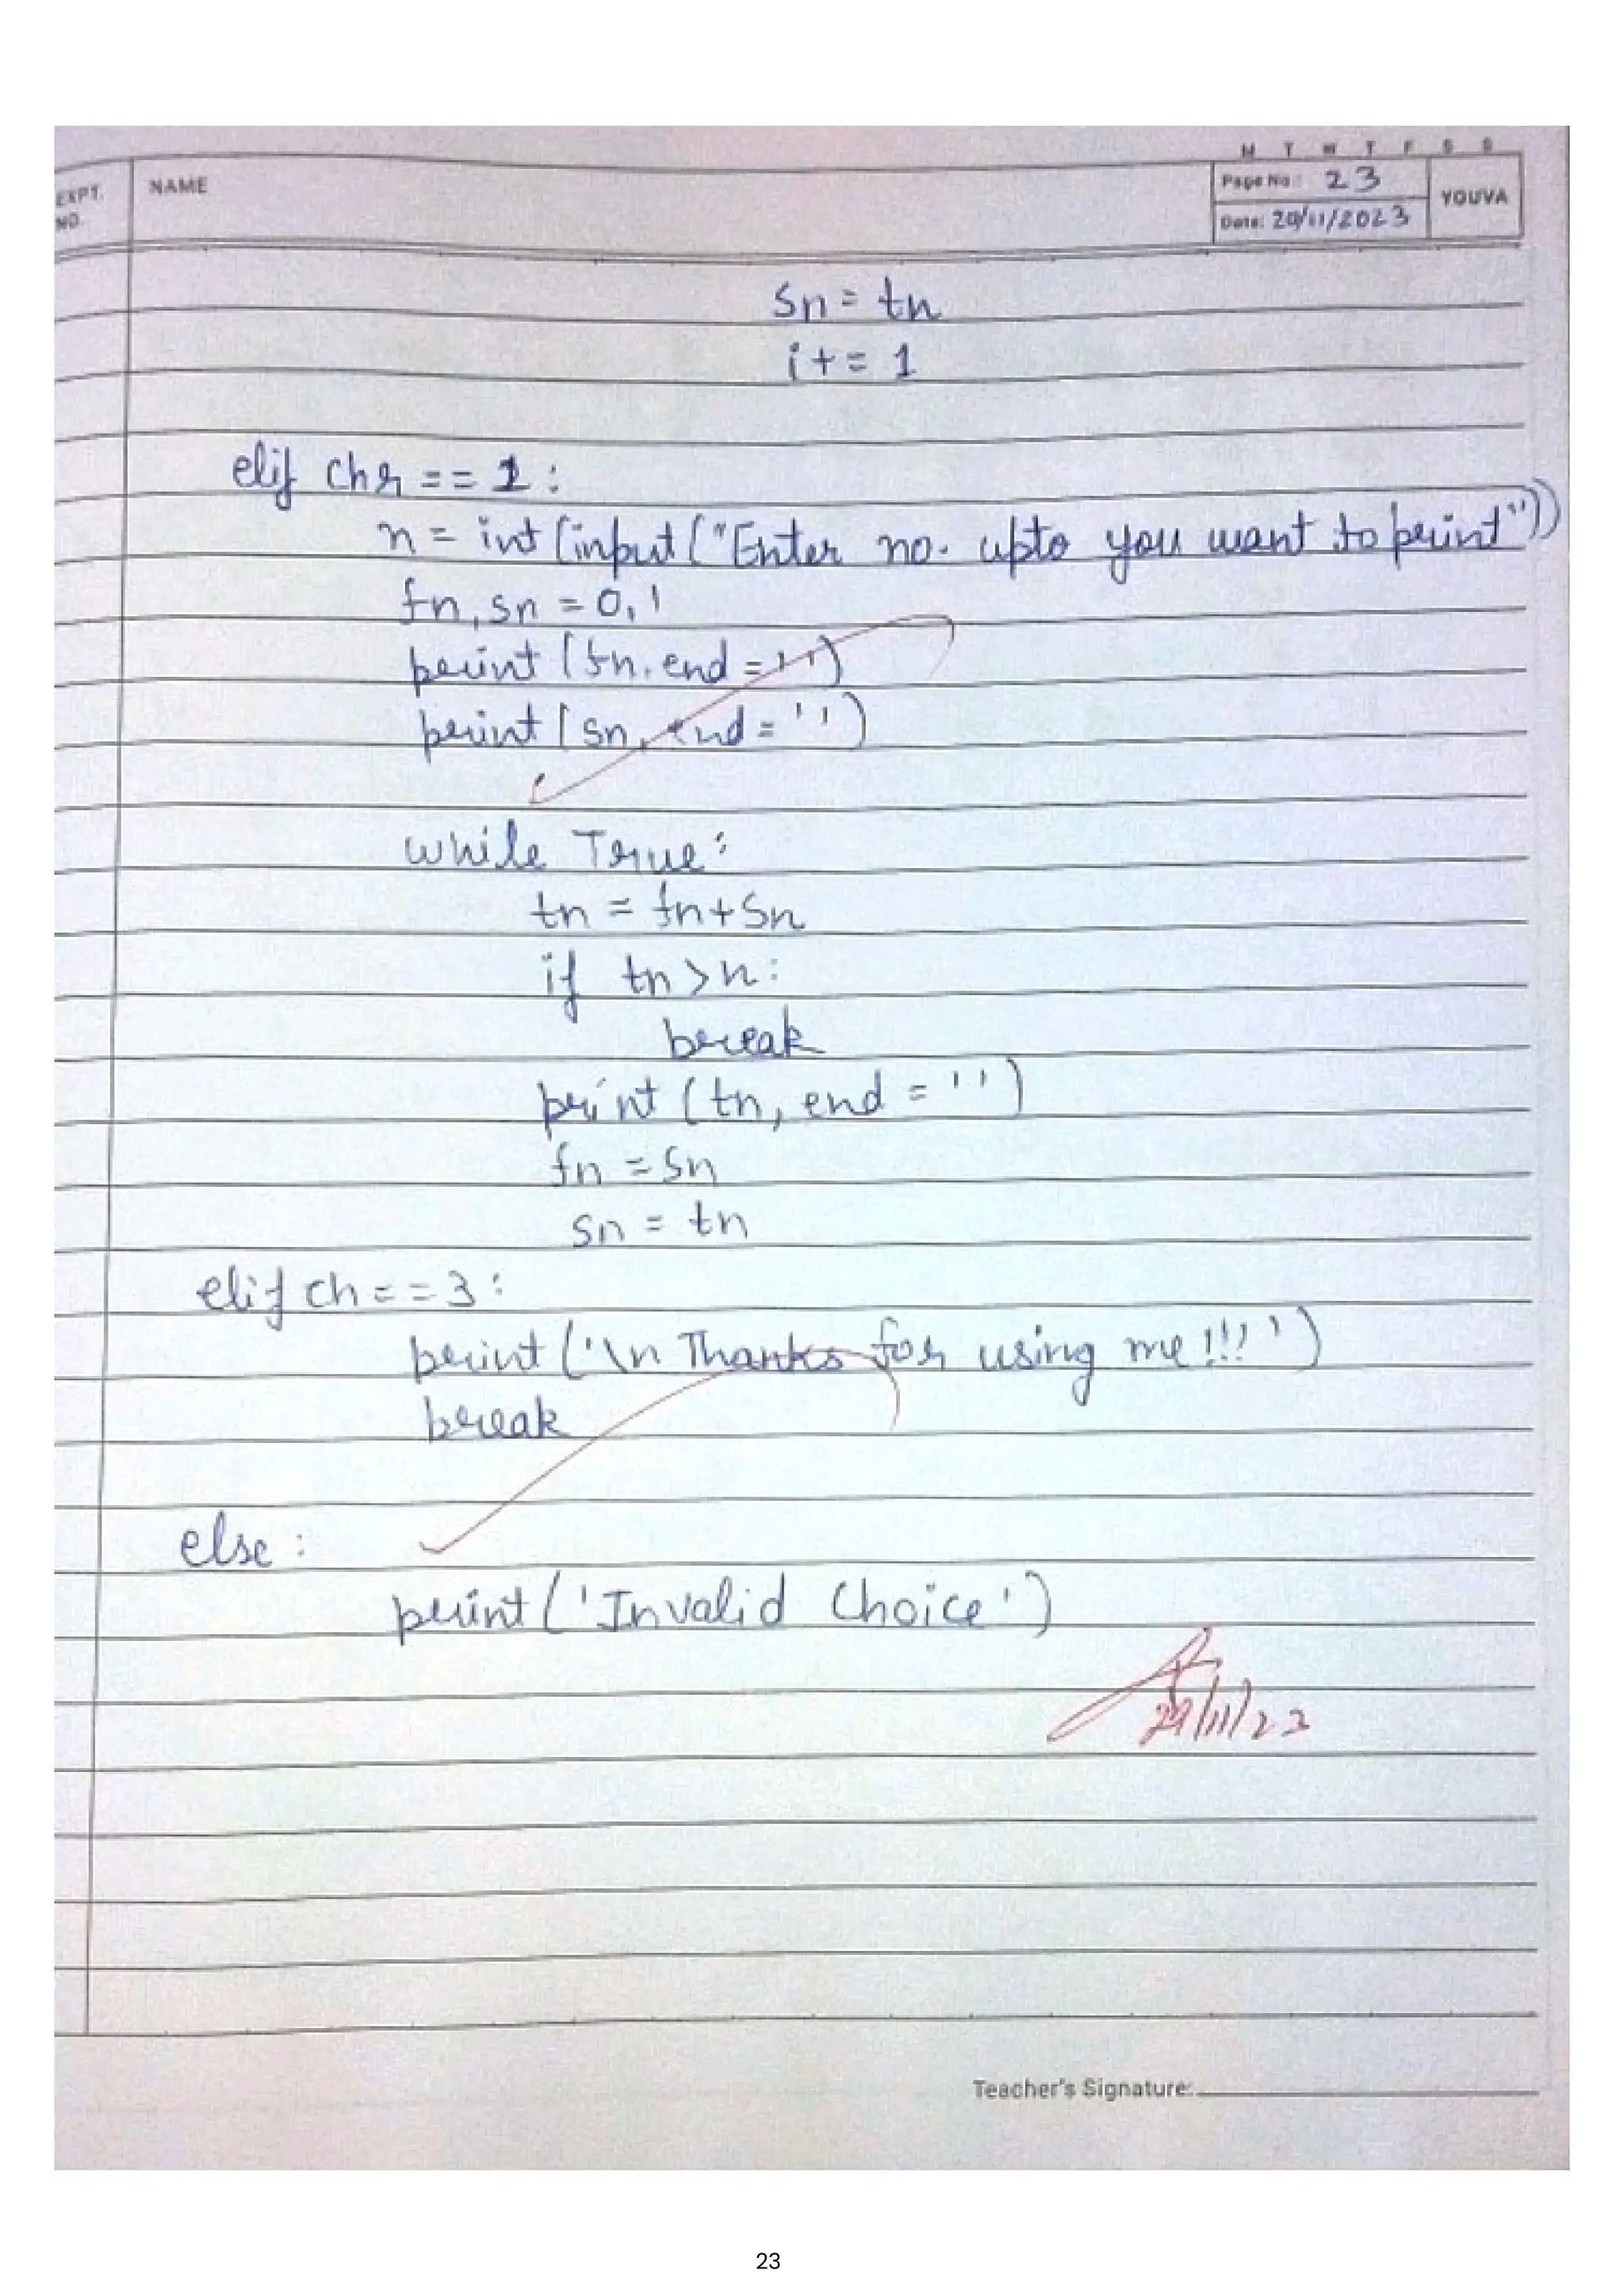 M T W T F S S
EXPT. NO.
NAME
Page No.: 23
YOUVA
Date: 20/11/2023
sn = tn
i += 1
elif chr == 1 :
n = int(input("Enter no. upto you want to print"))
fn, sn = 0, 1
print (fn, end = ' ')
print (sn, end = ' ')
while True :
tn = fn + sn
if tn > n :
break
print (tn, end = ' ')
fn = sn
sn = tn
elif ch == 3 :
print ('\n Thanks for using me !!! ')
break
else :
print ('Invalid Choice ')
29/11/22
Teacher's Signature:
23